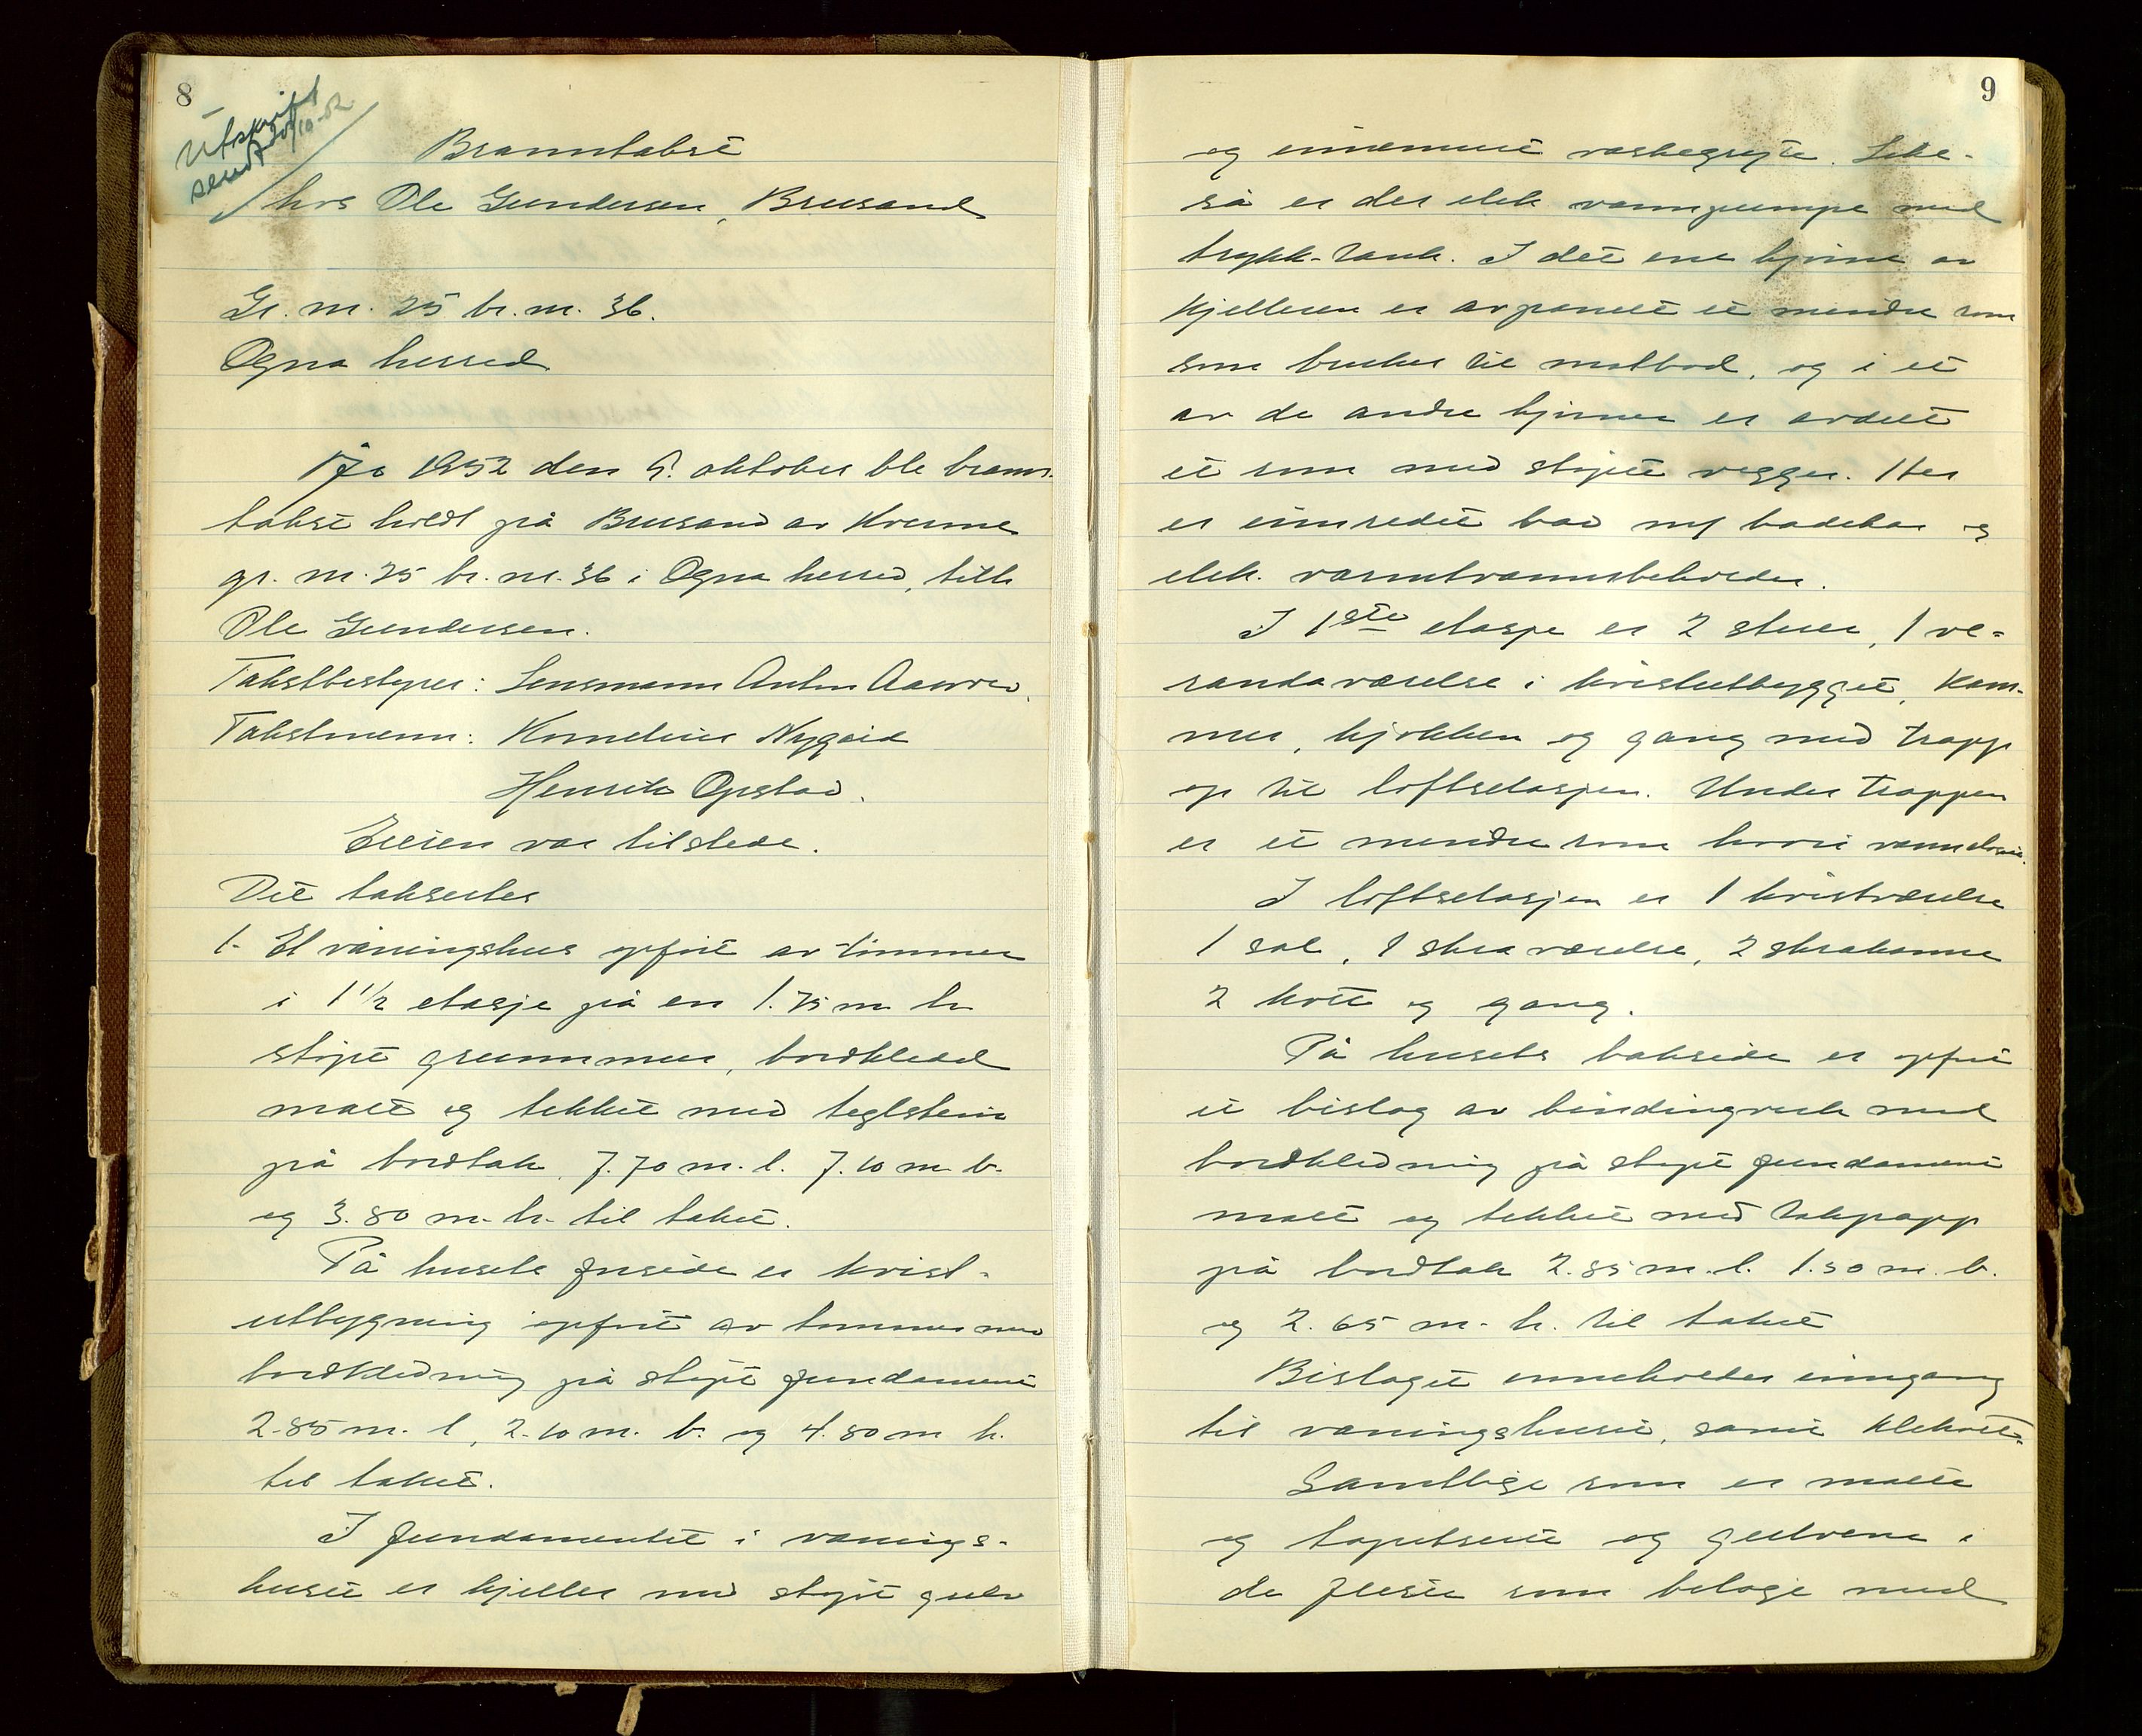 8
Utskrift
sendt 20/10-52
Branntakst
hos Ole Gundersen, Brusand
Gr. nr. 25 br. nr. 36.
Ogna herred
År 1952 den 9. oktober ble brann-
takst holdt på Brusand av Kverme
gr. nr. 25 br. nr. 36 i Ogna herred, tilh
Ole Gundersen.
Takstbestyrer: Lensmann Anton Aavre
Takstmenn: Kornelius Nygård
Henrik Opstad.
Eieren var tilstede.
Det takseertes
1. Et våningshus opført av tømmer
i 1 1/2 etasje på en 1.75 m h
støpt grunnmur, bordkledd
malt og tekket med teglstein
på bordtak, 7.70 m. l. 7.10 m b.
og 3.80 m. h. til taket.
På husets forside er kvist-
utbygning opført av tømmer med
bordkledning på støpt fundament
2.85 m. l, 2.10 m. b. og 4.80 m h.
til taket.
I fundamentet i vånings-
huset er kjeller med støpt gulv
9
og innemurt vaskegryte. Like-
så er der elek vannpumpe med
trykk-tank. I det ene hjørne av
kjelleren er avpanelt et mindre rom
som brukes til matbod, og i et
av de andre hjørner er avdelt
et rom med støpte vegger. Her
er innredet bad m/ badekar og
elek. varmtvannsbeholder.
I 1ste etasje er 2 stuer, 1 ve-
randaværelse i kvistutbygget, kam-
mer, kjøkken og gang med trapp
op til loftsetasjen. Under trappen
er et mindre rom hvori vannklosett.
I loftsetasjen er 1 kvistværelse
1 sal, 1 skraværelse, 2 skrakamre
2 kott og gang.
På husets bakside er opført
et bislag av bindingverk med
bordkledning på støpt fundament
malt og tekket med takpapp
på bordtak 2.85 m. l. 1.50 m. b.
og 2.65 m. h. til taket
Bislaget inneholder inngang
til våningshuset, samt klekott.
Samtlige rom er malte
og tapetserte og gulvene i
de fleste rom belagt med